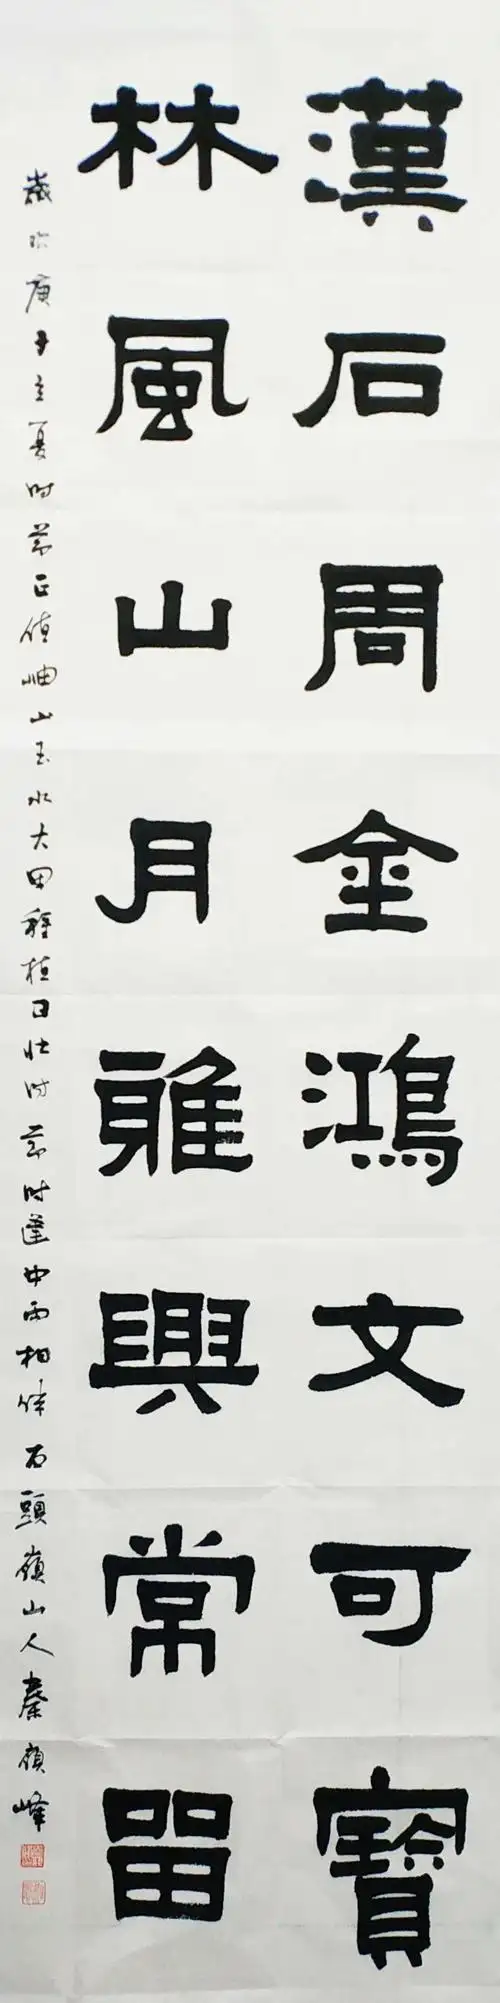 漢石周金鴻文可寶
林風山月雅興常留
歲次庚子立夏时节正值岫山玉水大田種植日忙时节时逢中雨相伴石頭嶺山人秦嶺峰